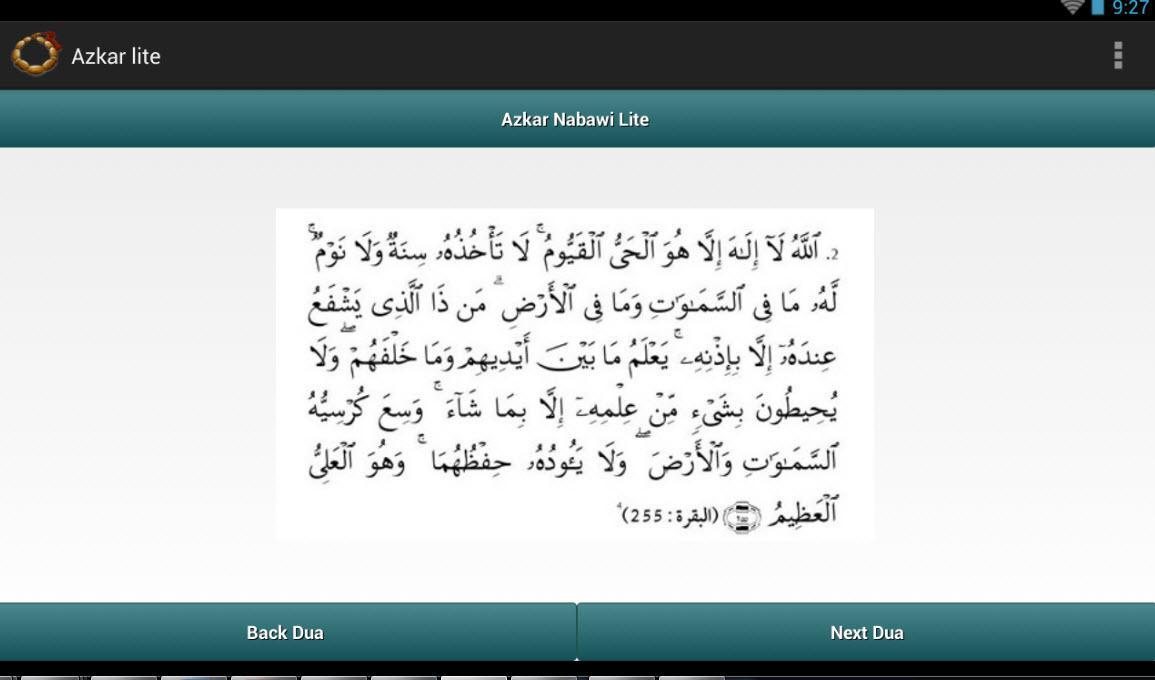 9:27
Azkar lite
Azkar Nabawi Lite
2. ٱللَّهُ لَآ إِلَـٰهَ إِلَّا هُوَ ٱلْحَىُّ ٱلْقَيُّومُ ۚ لَا تَأْخُذُهُۥ سِنَةٌ وَلَا نَوْمٌ ۚ
لَّهُۥ مَا فِى ٱلسَّمَـٰوَٰتِ وَمَا فِى ٱلْأَرْضِ ۗ مَن ذَا ٱلَّذِى يَشْفَعُ
عِندَهُۥٓ إِلَّا بِإِذْنِهِۦ ۚ يَعْلَمُ مَا بَيْنَ أَيْدِيهِمْ وَمَا خَلْفَهُمْ ۖ وَلَا
يُحِيطُونَ بِشَىْءٍ مِّنْ عِلْمِهِۦٓ إِلَّا بِمَا شَآءَ ۚ وَسِعَ كُرْسِيُّهُ
ٱلسَّمَـٰوَٰتِ وَٱلْأَرْضَ ۖ وَلَا يَـُٔودُهُۥ حِفْظُهُمَا ۚ وَهُوَ ٱلْعَلِىُّ
ٱلْعَظِيمُ ٢٥٥ (البقرة: 255)⁴
Back Dua
Next Dua